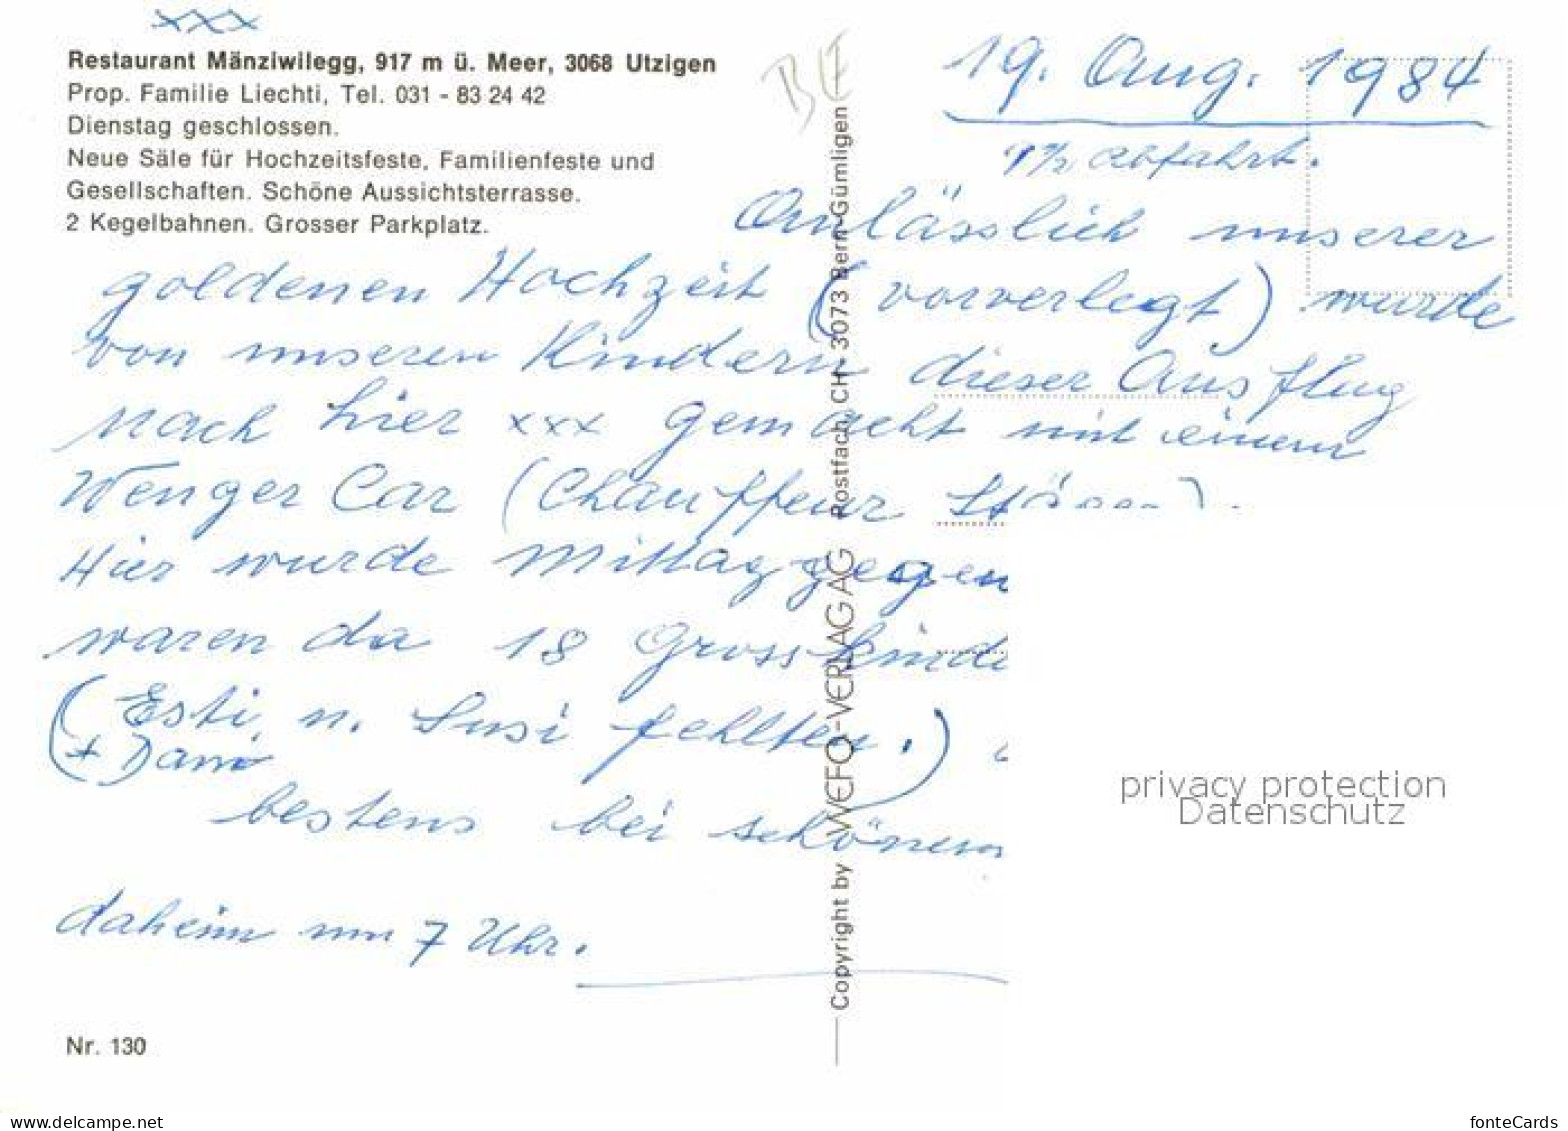 xxx
Restaurant Mänziwilegg, 917 m ü. Meer, 3068 Utzigen
Prop. Familie Liechti, Tel. 031 - 83 24 42
Dienstag geschlossen.
Neue Säle für Hochzeitsfeste, Familienfeste und
Gesellschaften. Schöne Aussichtsterrasse.
2 Kegelbahnen. Grosser Parkplatz.
BE
19. Aug. 1984
Abfahrt.
Anlässlich unserer
goldenen Hochzeit (vorverlegt) wurde
von unseren Kindern dieser Ausflug
nach hier xxx gemacht mit einem
Wenger Car (Chauffeur
Hier wurde Mittag gegen
waren da 18 Grosskinde
(Esti u. Susi fehlten.)
+ Dani
bestens bei schönem
daheim um 7 Uhr.
Nr. 130
Copyright by WEFO-VERLAG AG Postfach, CH - 3073 Bern-Gümligen
privacy protection
Datenschutz
www.delcampe.net
fonteCards